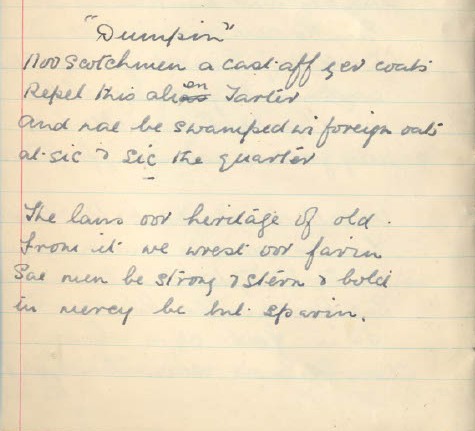 "Dumpin"
Noo Scotchmen a cast aff yer coats
Repel this alien Tarter
And nae be swamped wi foreign oats
at sic & sic the quarter
The lans oor heritage of old.
From it we wrest oor farin
Sae men be strong & stern & bold
in mercy be but sparin.